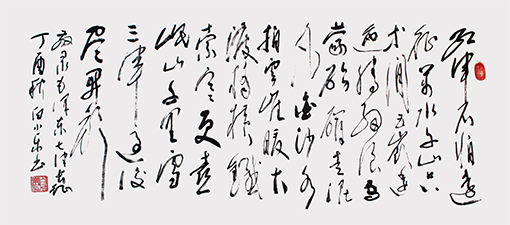 红军不怕远
征万水千山只
等闲五岭逶
迤腾细浪乌
蒙磅礴走泥
丸金沙水
拍云崖暖大
渡桥横铁
索寒更喜
岷山千里雪
三军过后
尽开颜
敬录毛泽东七律长征
丁酉秋白小东书